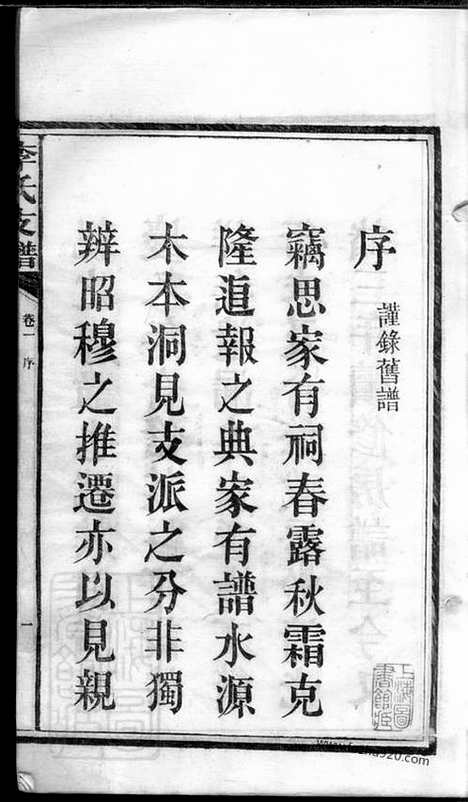 序
謹錄舊譜
竊思家有祠春露秋霜克
隆追報之典家有譜水源
木本洞見支派之分非獨
辨昭穆之推遷亦以見親
李氏支譜
卷一
序
一
上海圖
書館藏